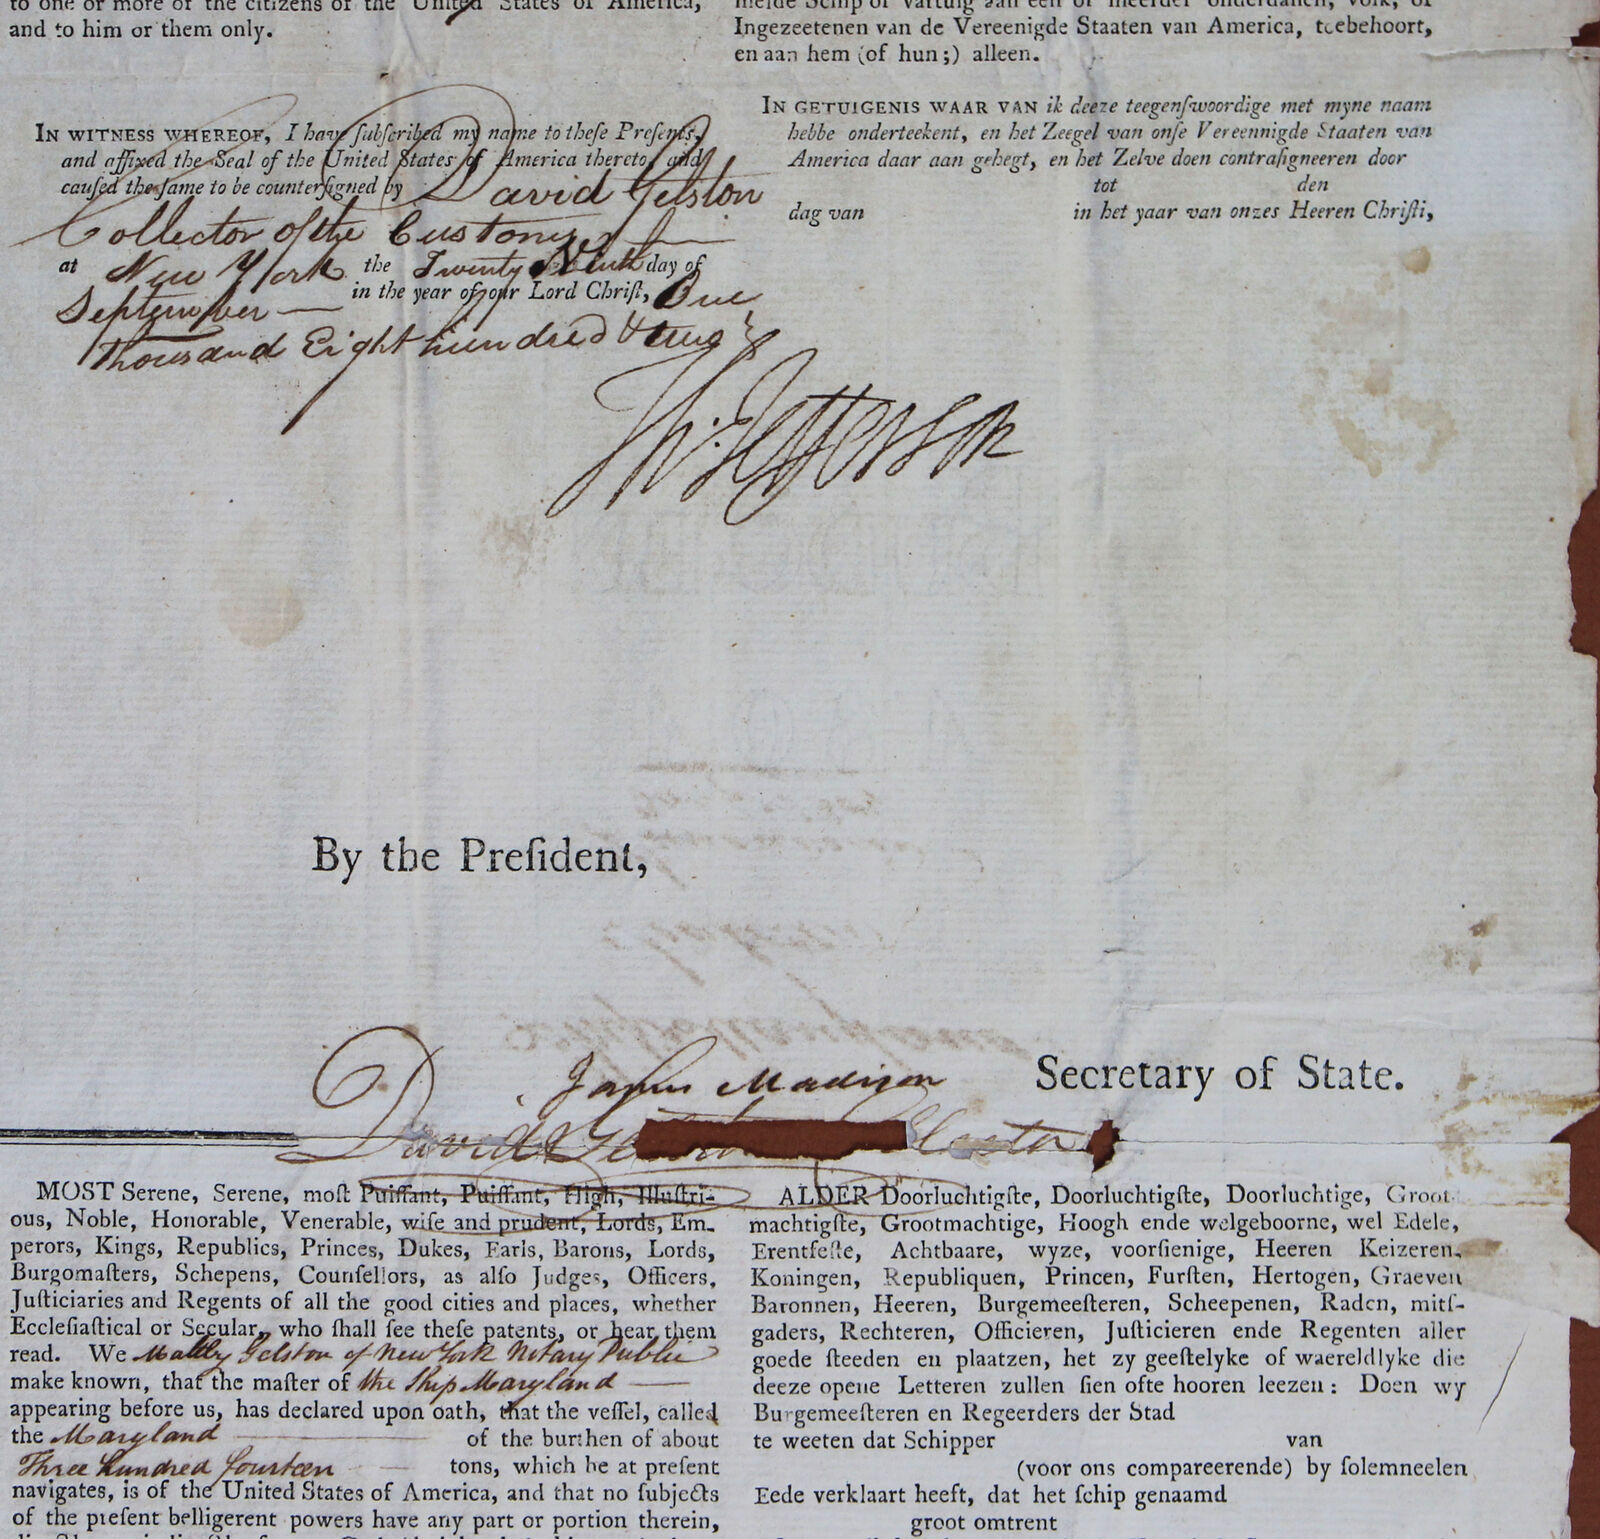 to one or more of the citizens of the United States of America,
and to him or them only.
IN WITNESS WHEREOF, I have ſubſcribed my name to theſe Preſents,
and affixed the Seal of the United States of America thereto, and
cauſed the ſame to be counterſigned by David Gelston
Collector of the Customs
at New York the Twenty Ninth day of
September in the year of our Lord Chriſt, One
Thousand Eight hundred & two
Th: Jefferson
By the Preſident,
James Madison Secretary of State.
David Gelston
MOST Serene, Serene, moſt Puiſſant, Puiſſant, High, Illuſtri-
ous, Noble, Honorable, Venerable, wiſe and prudent, Lords, Em-
perors, Kings, Republics, Princes, Dukes, Earls, Barons, Lords,
Burgomaſters, Schepens, Counſellors, as alſo Judges, Officers,
Juſticiaries and Regents of all the good cities and places, whether
Eccleſiaſtical or Secular, who ſhall ſee theſe patents, or hear them
read. We Maltby Gelston of New York Notary Public
make known, that the maſter of the Ship Maryland
appearing before us, has declared upon oath, that the veſſel, called
the Maryland of the burthen of about
Three hundred fourteen tons, which he at preſent
navigates, is of the United States of America, and that no ſubjects
of the preſent belligerent powers have any part or portion therein,
Ingezeetenen van de Vereenigde Staaten van America, toebehoort,
en aan hem (of hun;) alleen.
IN GETUIGENIS WAAR VAN ik deeze teegenſwoordige met myne naam
hebbe onderteekent, en het Zeegel van onſe Vereennigde Staaten van
America daar aan gehegt, en het Zelve doen contraſigneeren door
tot den
dag van in het yaar van onzes Heeren Chriſti,
ALDER Doorluchtigſte, Doorluchtigſte, Doorluchtige, Groot-
machtigſte, Grootmachtige, Hoogh ende welgeboorne, wel Edele,
Erentfeſte, Achtbaare, wyze, voorſienige, Heeren Keizeren,
Koningen, Republiquen, Princen, Furſten, Hertogen, Graeven
Baronnen, Heeren, Burgemeeſteren, Scheepenen, Raden, mitſ-
gaders, Rechteren, Officieren, Juſticieren ende Regenten aller
goede ſteeden en plaatzen, het zy geeſtelyke of waereldlyke die
deeze opene Letteren zullen ſien ofte hooren leezen: Doen wy
Burgemeeſteren en Regeerders der Stad
te weeten dat Schipper van
(voor ons compareerende) by ſolemneelen
Eede verklaart heeft, dat het ſchip genaamd
groot omtrent